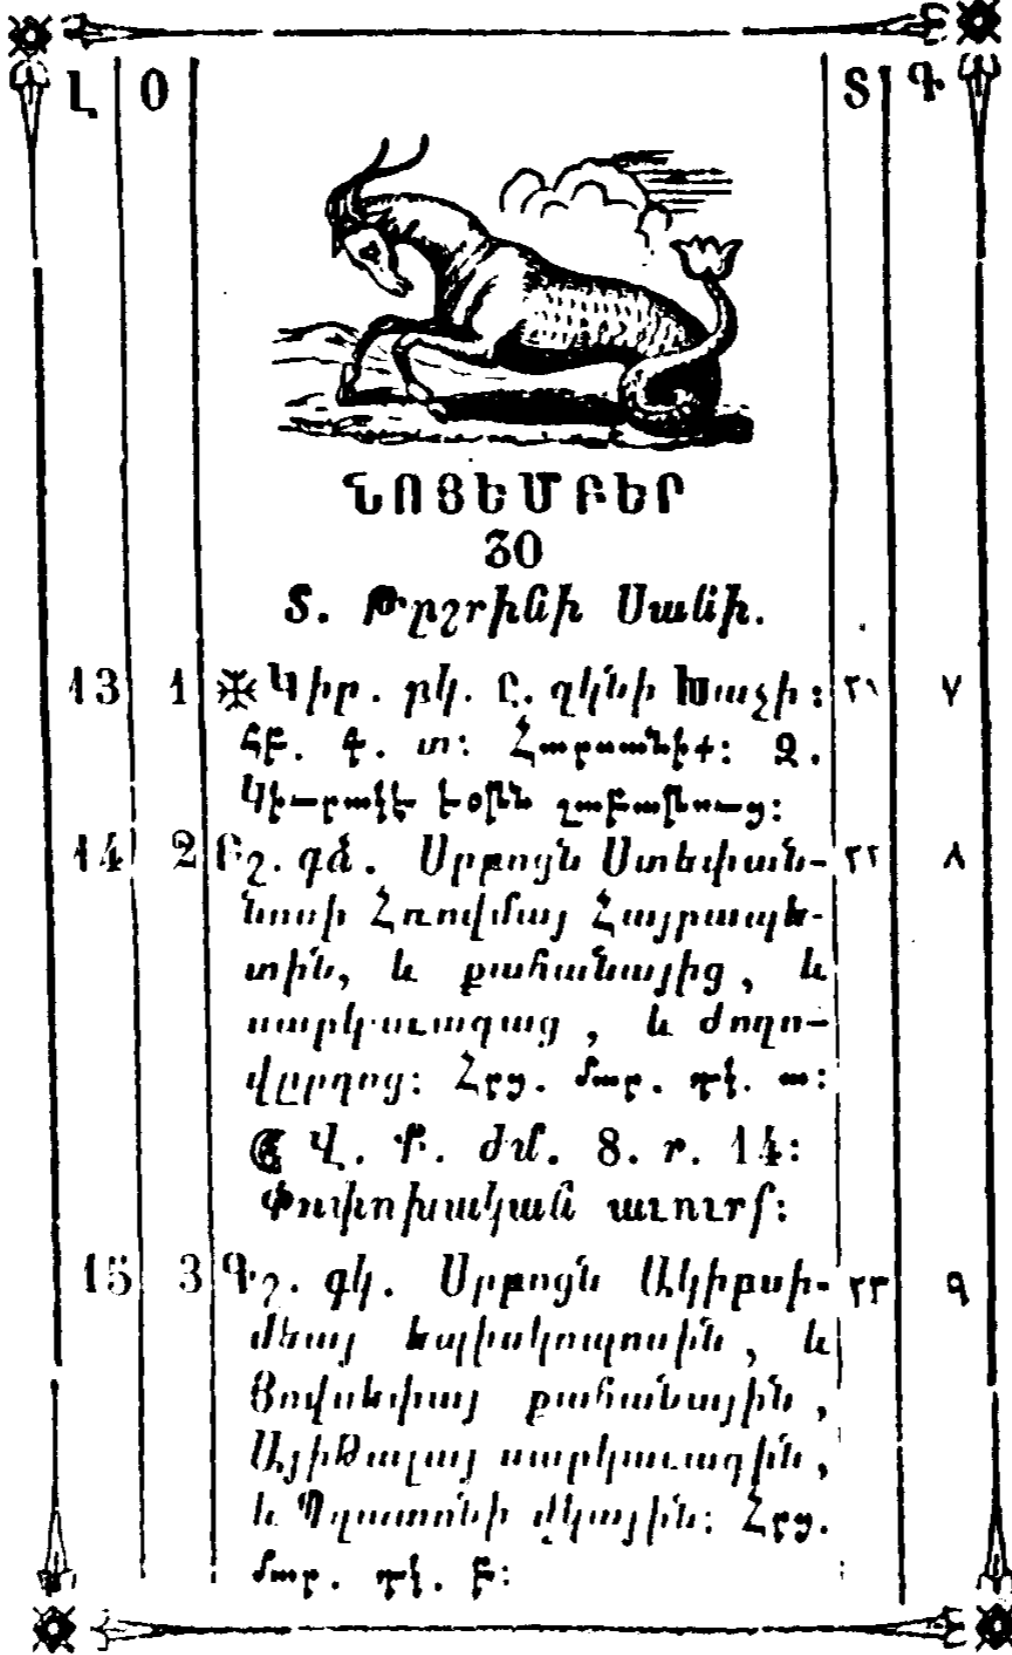 Լ Օ Տ Գ
ՆՈՅԵՄԲԵՐ
30
Տ. Թըշրինի Սանի.
13 1 Կիր. բկ. Ը. զկնի Խաչի: ٢١ ٧
ՀԲ. Գ. տ: Հարսանիք: Զ.
Կիւրակէ էօլեն շաբաթուց:
14 2 Բշ. գձ. Սրբոյն Ստեփան- ٢٢ ٨
նոսի Հռովմայ Հայրապե-
տին, և քահանայից, և
սարկաւագաց, և ժողո-
վըրդոց: Հրց. մար. դկ. ա:
Վ. Ք. ժմ. 8. ր. 14:
Փոփոխական աւուրս:
15 3 Գշ. գկ. Սրբոյն Ակիփսի- ٢٣ ٩
մեայ եպիսկոպոսին, և
Յովսեփայ քահանային,
Այիթալայ սարկաւագին,
և Պղատոնի վկային: Հրց.
մար. դկ. բ: